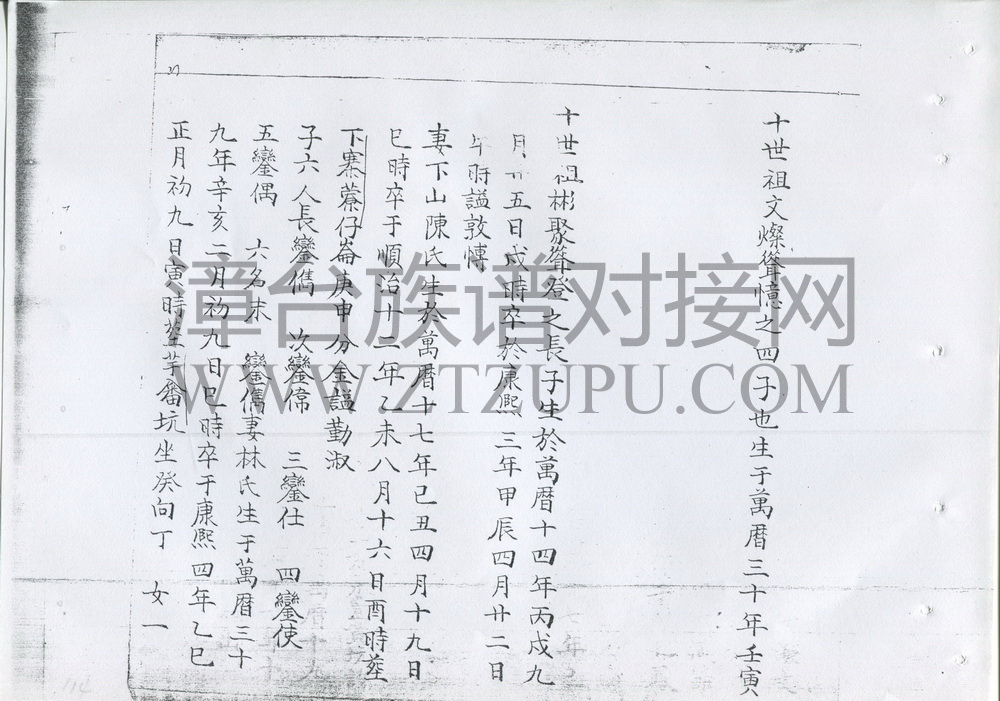 十世祖文燦聳憶之四子也生于萬曆三十年壬寅
十世祖彬聚聳登之長子生於萬曆十四年丙戌九
月廿五日戌時卒於康熙三年甲辰四月廿二日
午時謚敦慱
妻下山陳氏生於萬曆十七年己丑四月十九日
巳時卒于順治十二年乙未八月十六日酉時塟
下寨藔仔崙庚申分金謚勤淑
子六人長鑾儁 次鑾常 三鑾仕 四鑾使
五鑾偶 六名未 鑾儁妻林氏生于萬曆三十
九年辛亥二月初九日巳時卒于康熙四年乙巳
正月初九日寅時塟芋畬坑坐癸向丁 女一
漳台族谱对接网
WWW.ZTZUPU.COM
114